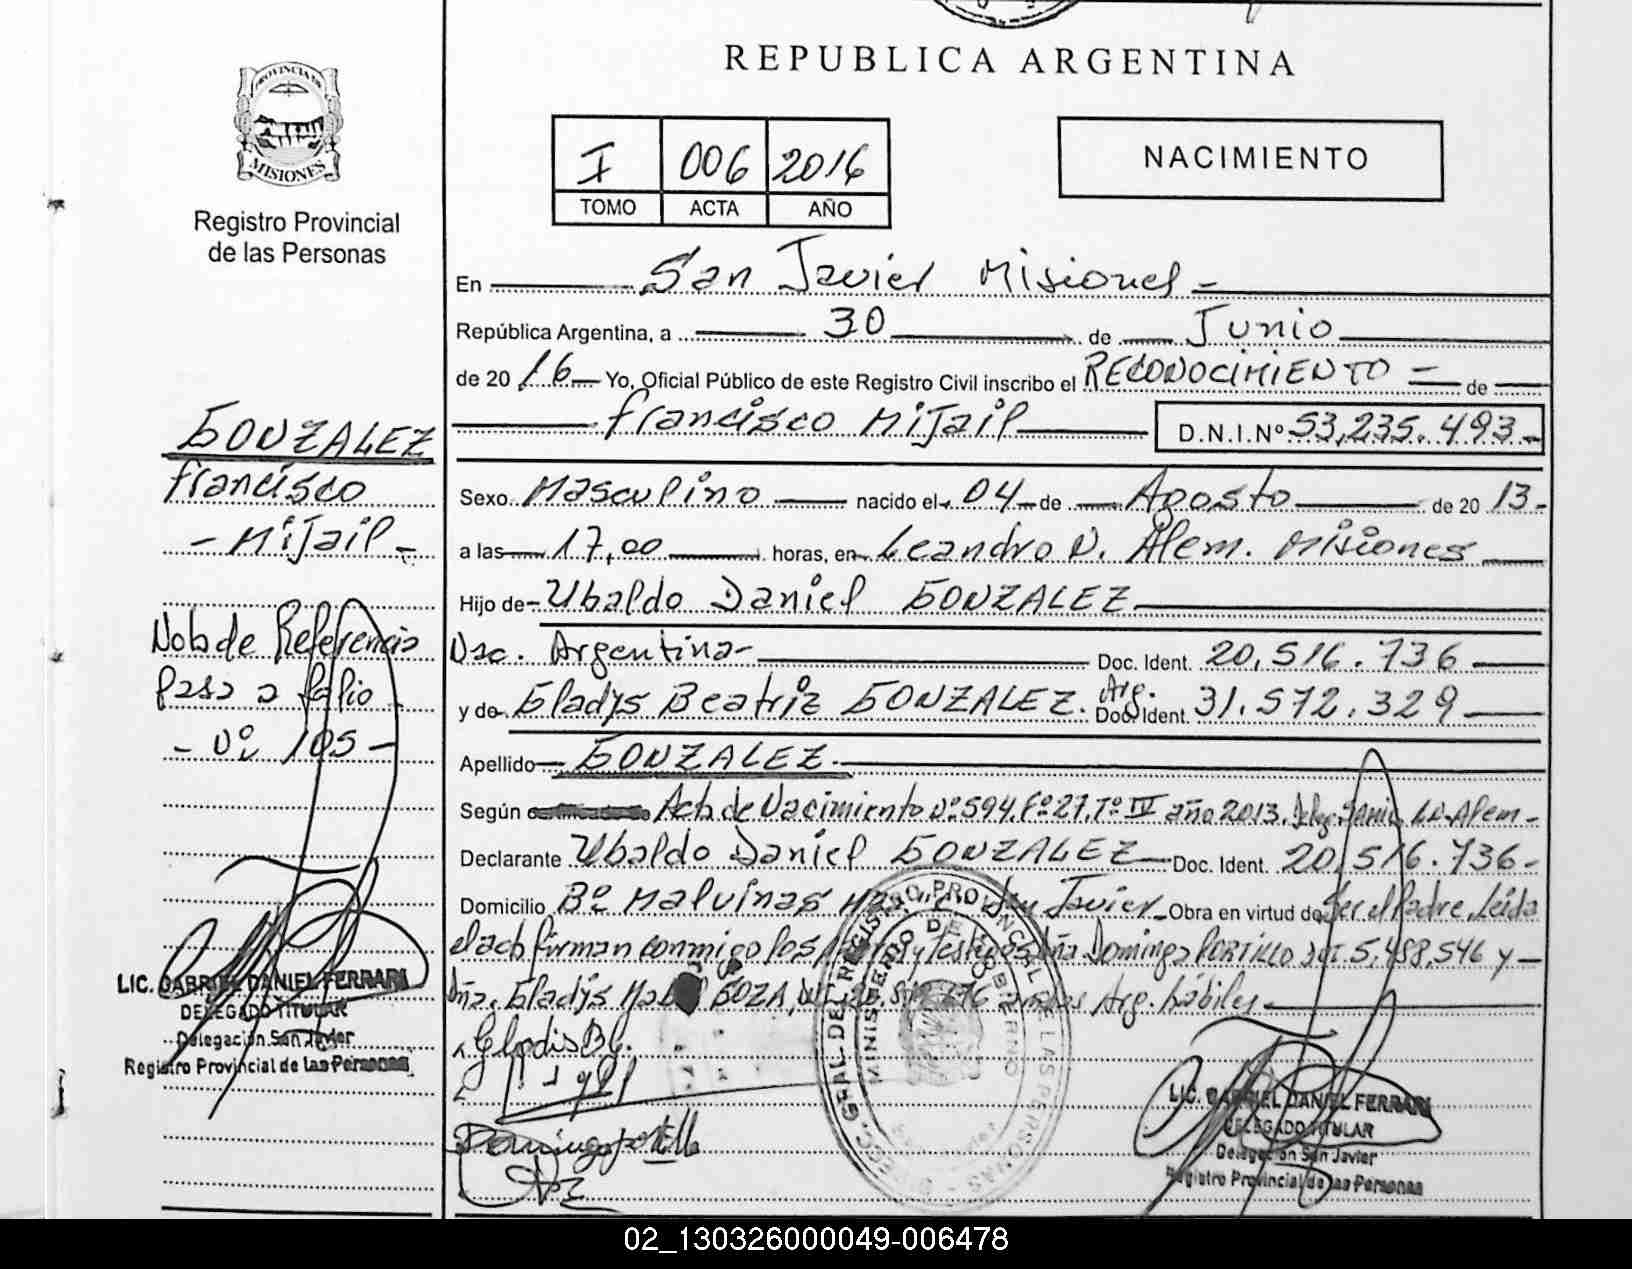 PROVINCIA DE
MISIONES
Registro Provincial
de las Personas
GONZALEZ
Francisco
- Mijail -
Nota de Referencia
Pasa a folio
- Nº 105 -
LIC. GABRIEL DANIEL FERRARI
DELEGADO TITULAR
Delegación San Javier
Registro Provincial de las Personas
REPUBLICA ARGENTINA
I 006 2016
TOMO ACTA AÑO
NACIMIENTO
En San Javier Misiones -
República Argentina, a 30 de Junio
de 20 16 Yo, Oficial Público de este Registro Civil inscribo el RECONOCIMIENTO - de
Francisco Mijail D.N.I.Nº 53,235.493-
Sexo Masculino nacido el 04 de Agosto de 20 13-
a las 17,00 horas, en Leandro N. Alem. Misiones
Hijo de Ubaldo Daniel GONZALEZ
Nac. Argentina- Doc. Ident. 20,516.736
y de Gladys Beatriz GONZALEZ. Arg. Doc. Ident. 31.572.329
Apellido GONZALEZ.
Según Acta de Nacimiento Nº 594. Fº 27. Tº IV año 2013. L.N. Alem-
Declarante Ubaldo Daniel GONZALEZ Doc. Ident. 20,516.736-
Domicilio Bº Malvinas San Javier. Obra en virtud de Ser el Padre, Leída
el acta firman conmigo los y Testigos Dña Dominga PORTILLO DNI. 5,488,546 y
Dña. Gladys GOZA, Arg. hábiles.
Gladis B G.
Dominga Portillo
DIREC. GRAL. DE REGISTRO PROVINCIAL DE LAS PERSONAS
MINISTERIO DE GOBIERNO
LIC. GABRIEL DANIEL FERRARI
DELEGADO TITULAR
Delegación San Javier
Registro Provincial de las Personas
02_130326000049-006478